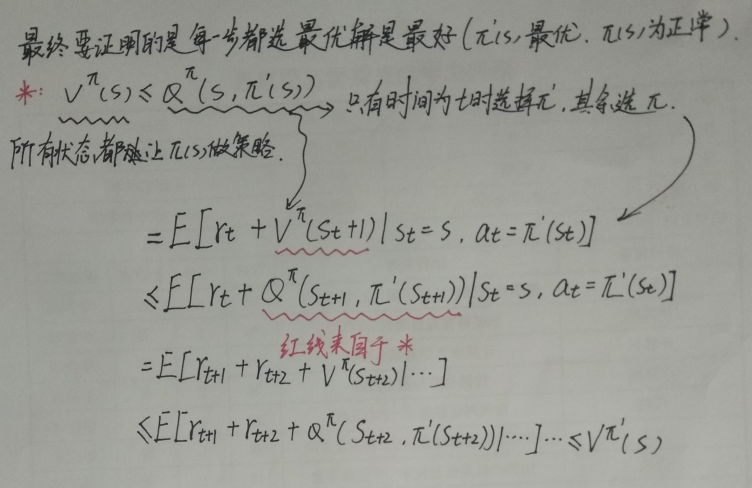 最终要证明的是每一步都选最优解是最好(π'(s)最优.π(s)为正常).
*: V^π(s) ≤ Q^π(s, π'(s)) → 只有时间为t时选择π', 其余选π.
所有状态,都让π(s)做策略.
= E[r_t + V^π(S_t+1) | S_t = s, a_t = π'(S_t)]
≤ E[r_t + Q^π(S_{t+1}, π'(S_{t+1})) | S_t = s, a_t = π'(S_t)]
红线来自于 *
= E[r_{t+1} + r_{t+2} + V^π(S_{t+2}) | ...]
≤ E[r_{t+1} + r_{t+2} + Q^π(S_{t+2}, π'(S_{t+2})) | ....] ... ≤ V^{π'}(s)